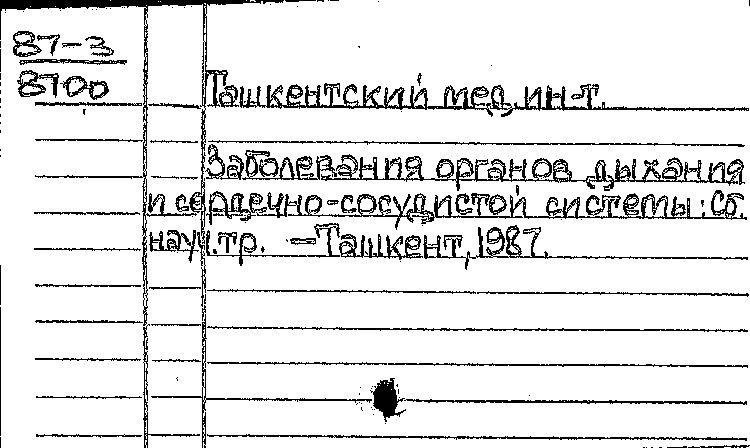 87-3
8700
Ташкентский мед. ин-т.
Заболевания органов дыхания
и сердечно-сосудистой системы: Сб.
науч. тр. – Ташкент, 1987.